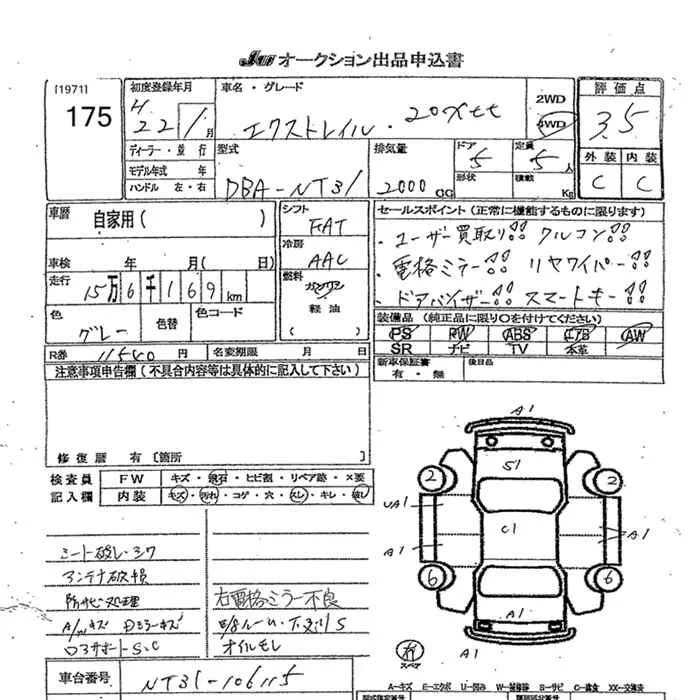 JU オークション出品申込書
[1971]
175
初度登録年月
22年 1月
車名・グレード
エクストレイル・20Xtt
2WD
4WD
評価点
3.5
ディーラー・並行
モデル年式 年
ハンドル 左・右
型式
DBA-NT31
排気量
2000cc
ドア
5
形状
定員
5人
積載
Kg
外装 内装
C C
車歴 自家用( )
シフト
FAT
セールスポイント(正常に機能するものに限ります)
・ユーザー買取り!! クルコン!!
・電格ミラー!! リヤワイパー!!
・ドアバイザー!! スマートキー!!
冷房
AAC
車検 年 月( 日)
走行 15万6千169km
燃料
ガソリン
軽油
( )
色
グレー
色替
色コード
装備品(純正品に限り○を付けてください)
PS PW ABS エアB AW
SR ナビ TV 本革
R券 11540円
名変期限 月 日
新車保証書
有・無
後日品
注意事項申告欄(不具合内容等は具体的に記入して下さい)
修復歴 有〔箇所 〕
検査員
記入欄
FW キズ・飛石・ヒビ割・リペア跡・×要
内装 キズ・汚れ・コゲ・穴・スレ・キレ・破レ
シート破レ・シワ
アンテナ破損
防サビ処理
A/Wキズ Dミラーキズ
コアサポートS、C
右電格ミラー不良
下廻りS
オイルモレ
車台番号 NT31-106115
A1
S1
2
2
UA1
C1
A1
A1
6
6
A1
有
スペア
A1
A-キズ E-エクボ U-凹み W-補修跡 S-サビ C-腐食 XX-交換済